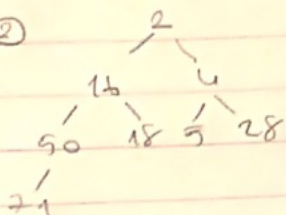 2
2
16 4
50 18 5 28
71